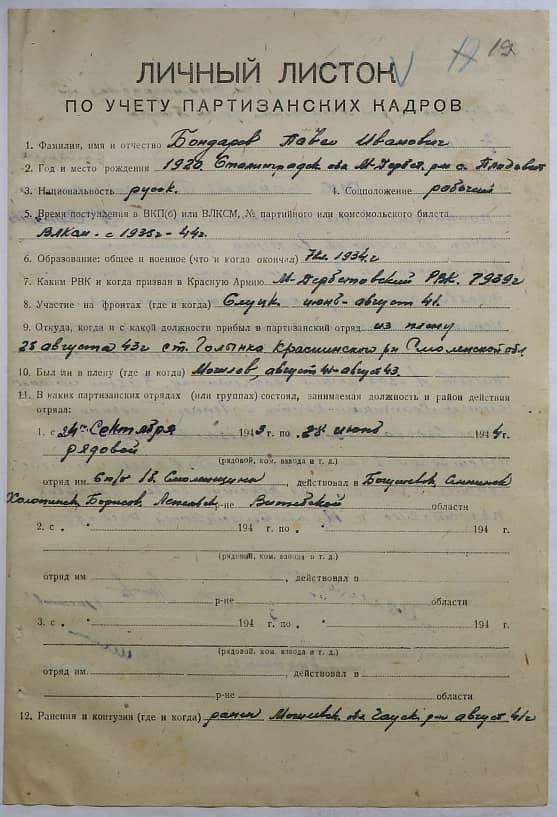 19
ЛИЧНЫЙ ЛИСТОК
ПО УЧЕТУ ПАРТИЗАНСКИХ КАДРОВ
1. Фамилия, имя и отчество Бондарев Павел Иванович
2. Год и место рождения 1920. Сталинградск. обл М-Дербет. р-н с. Плодовит
3. Национальность русск. 4. Соцположение рабочий
5. Время поступления в ВКП(б) или ВЛКСМ, № партийного или комсомольского билета
ВЛКСМ - с 1935г - 44г.
6. Образование: общее и военное (что и когда окончил) 7кл. 1934.г
7. Каким РВК и когда призван в Красную Армию М-Дербетовский РВК. 1939г
8. Участие на фронтах (где и когда) Слуцк. июнь-август 41.
9. Откуда, когда и с какой должности прибыл в партизанский отряд из плену
25 августа 43г ст. Голынка Краснинского рн Смоленской обл.
10. Был ли в плену (где и когда) Могилев, август 41-август 43.
11. В каких партизанских отрядах (или группах) состоял, занимаемая должность и район действия
отряда:
1. с 24го Сентября 1943 г. по 28 июнь 1944 г.
рядовой
(рядовой, ком. взвода и т. д.)
отряд им. 6 п/о 18. Смоленщина, действовал в Богушевск Сеннинск
Холопинск, Борисов, Лепельск р-не Витебской области
2. с . " 194 г. по . " 194 г.
(рядовой, ком. взвода и т. д.)
отряд им , действовал в
р-не области
3. с . " 194 г. по . " 194 г.
(рядовой, ком. взвода и т. д.)
отряд им. , действовал в
р-не области
12. Ранения и контузия (где и когда) ранен Могилевск. обл Чауск. р-н август 41г